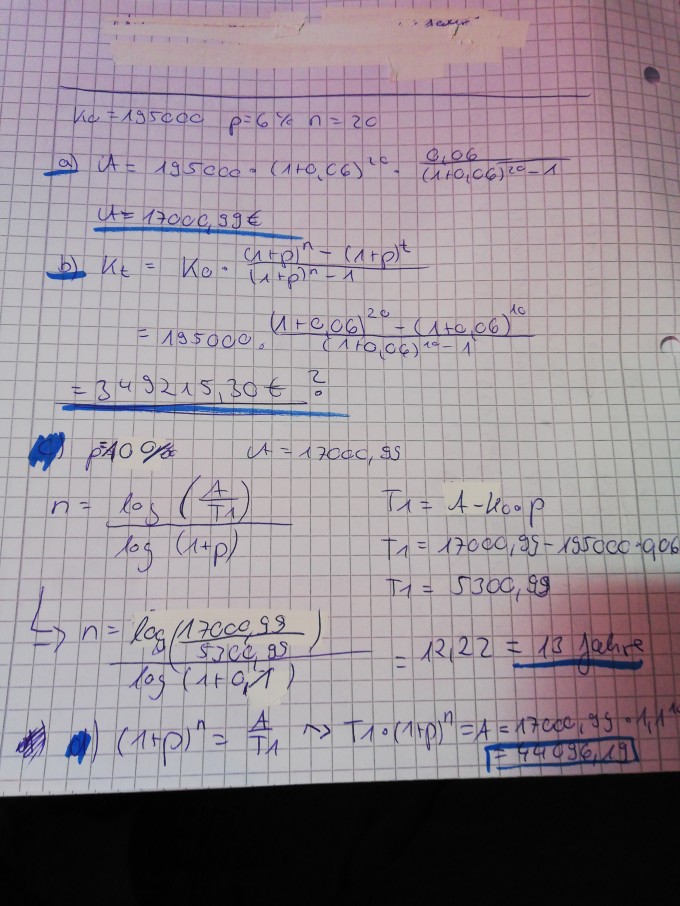 K₀ = 195000 p = 6% n = 20
a) A = 195000 · (1+0,06)²⁰ · 0,06 / ((1+0,06)²⁰ - 1)
A = 17000,99 €
b) Kt = K₀ · ((1+p)ⁿ - (1+p)ᵗ) / ((1+p)ⁿ - 1)
= 195000 · ((1+0,06)²⁰ - (1+0,06)¹⁰) / ((1+0,06)¹⁰ - 1)
= 349215,30 € ?
c) p=10% A = 17000,99
n = log (A/T1) / log (1+p)
T1 = A - K₀ · p
T1 = 17000,99 - 195000 · 0,06
T1 = 5300,99
↳ n = log (17000,99 / 5300,99) / log (1+0,1) = 12,22 = 13 Jahre
d) (1+p)ⁿ = A/T1 ~> T1 · (1+p)ⁿ = A = 17000,99 · 1,1¹⁰
= 44496,19